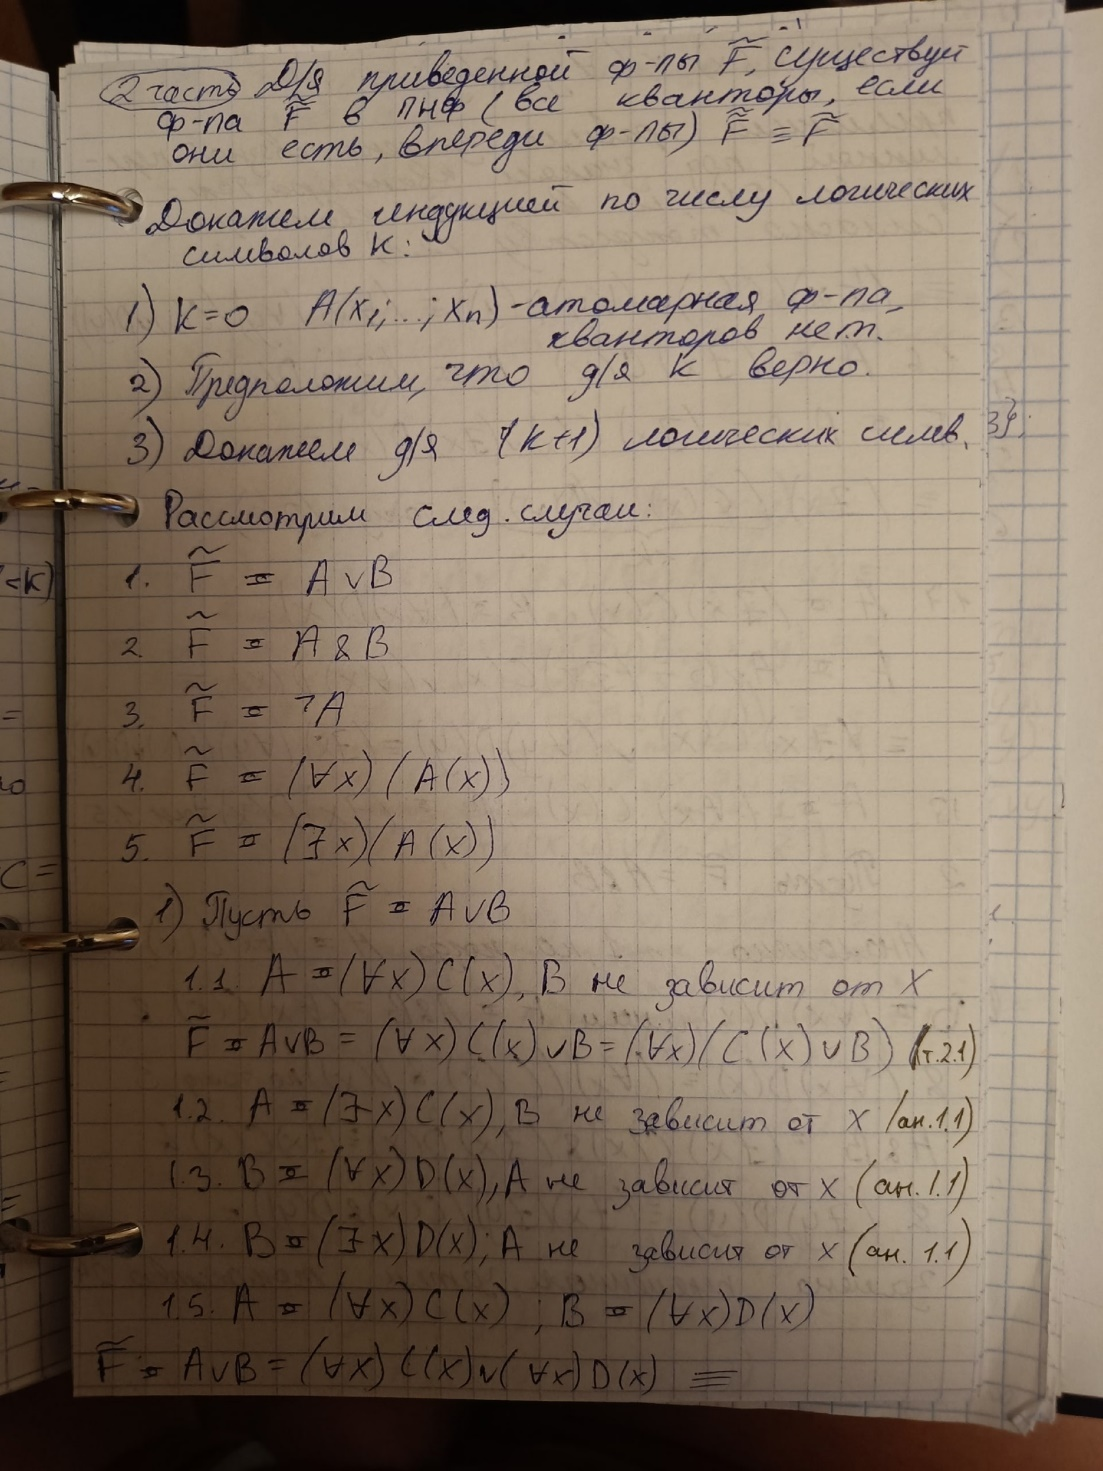 2 часть Для приведенной ф-лы F̃, существует
ф-ла F̃̃ в ПНФ (все кванторы, если
они есть, впереди ф-лы) F̃̃ ≡ F̃
Докажем индукцией по числу логических
символов K:
1) K=0 A(x₁;...;xₙ) - атомарная ф-ла,
кванторов нет.
2) Предположим, что для K верно.
3) Докажем для (K+1) логических симв.
Рассмотрим след. случаи:
1. F̃ = A∨B
2. F̃ = A & B
3. F̃ = ¬A
4. F̃ = (∀x) (A(x))
5. F̃ = (∃x)(A(x))
1) Пусть F̃ = A∨B
1.1. A = (∀x) C(x), B не зависит от x
F̃ = A∨B = (∀x) C(x)∨B = (∀x)(C(x)∨B) (т.2.1)
1.2. A = (∃x)C(x), B не зависит от x (ан.1.1)
1.3. B = (∀x) D(x), A не зависит от x (ан.1.1)
1.4. B = (∃x)D(x); A не зависит от x (ан. 1.1)
1.5. A = (∀x) C(x) ; B = (∀x)D(x)
F̃ = A∨B = (∀x) C(x)∨(∀x)D(x) ≡